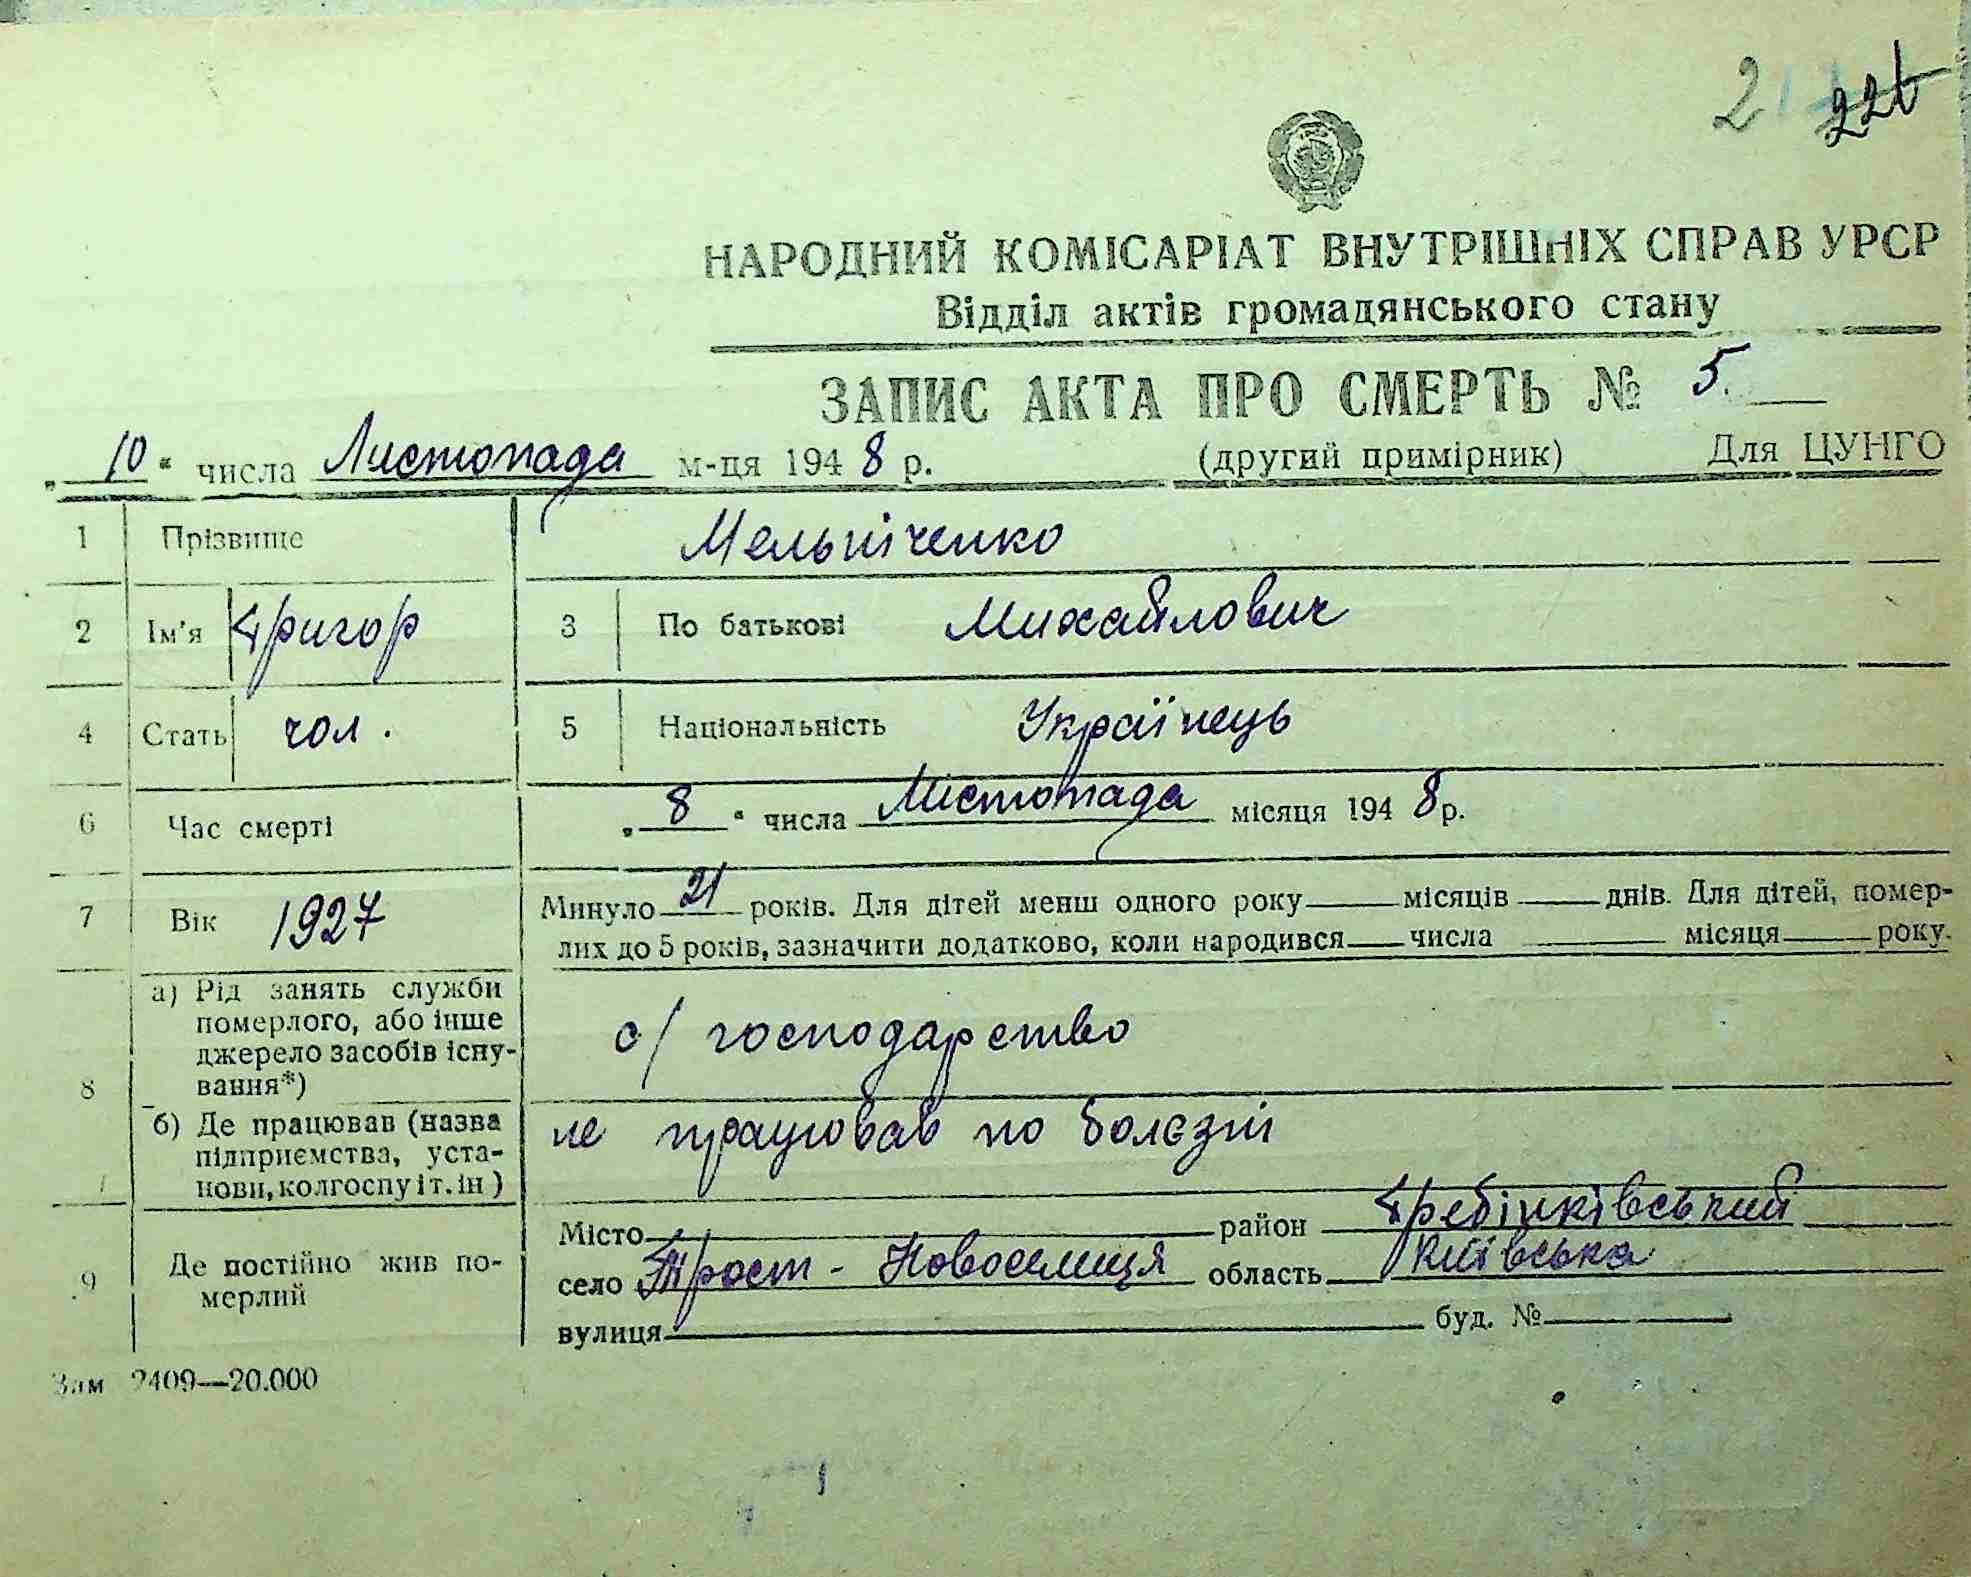 2
НАРОДНИЙ КОМІСАРІАТ ВНУТРІШНІХ СПРАВ УРСР
Відділ актів громадянського стану
ЗАПИС АКТА ПРО СМЕРТЬ № 5.
„ 10 “ числа Листопада м-ця 1948 р. (другий примірник) Для ЦУНГО
1 Прізвище Мельніченко
2 Ім'я Григор 3 По батькові Михайлович
4 Стать чол. 5 Національність Українець
6 Час смерті „ 8 “ числа Лістопада місяця 1948 р.
7 Вік 1927 Минуло 21 років. Для дітей менш одного року місяців днів. Для дітей, помер-
лих до 5 років, зазначити додатково, коли народився числа місяця року.
8 а) Рід занять служби
померлого, або інше
джерело засобів існу-
вання*)
с/господарство
б) Де працював (назва
підприємства, уста-
нови, колгоспу і т. ін)
не працював по болєзні
9 Де постійно жив по-
мерлий
Місто район Гребінківський
село Трост-Новоселиця область Київська
вулиця буд. №
Зам 2409—20.000